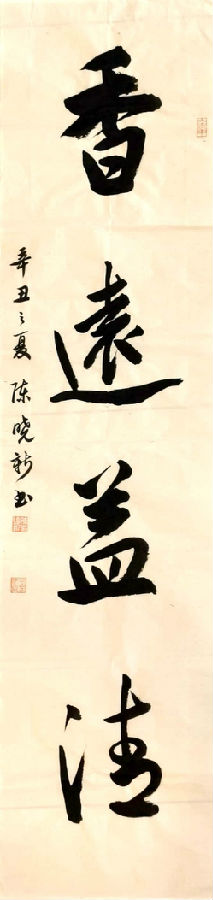 香遠益清
辛丑之夏 陈晓新书